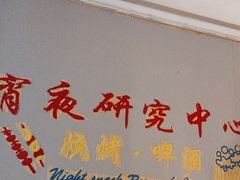 宵夜研究中心
烧烤·啤酒
Night snack Research